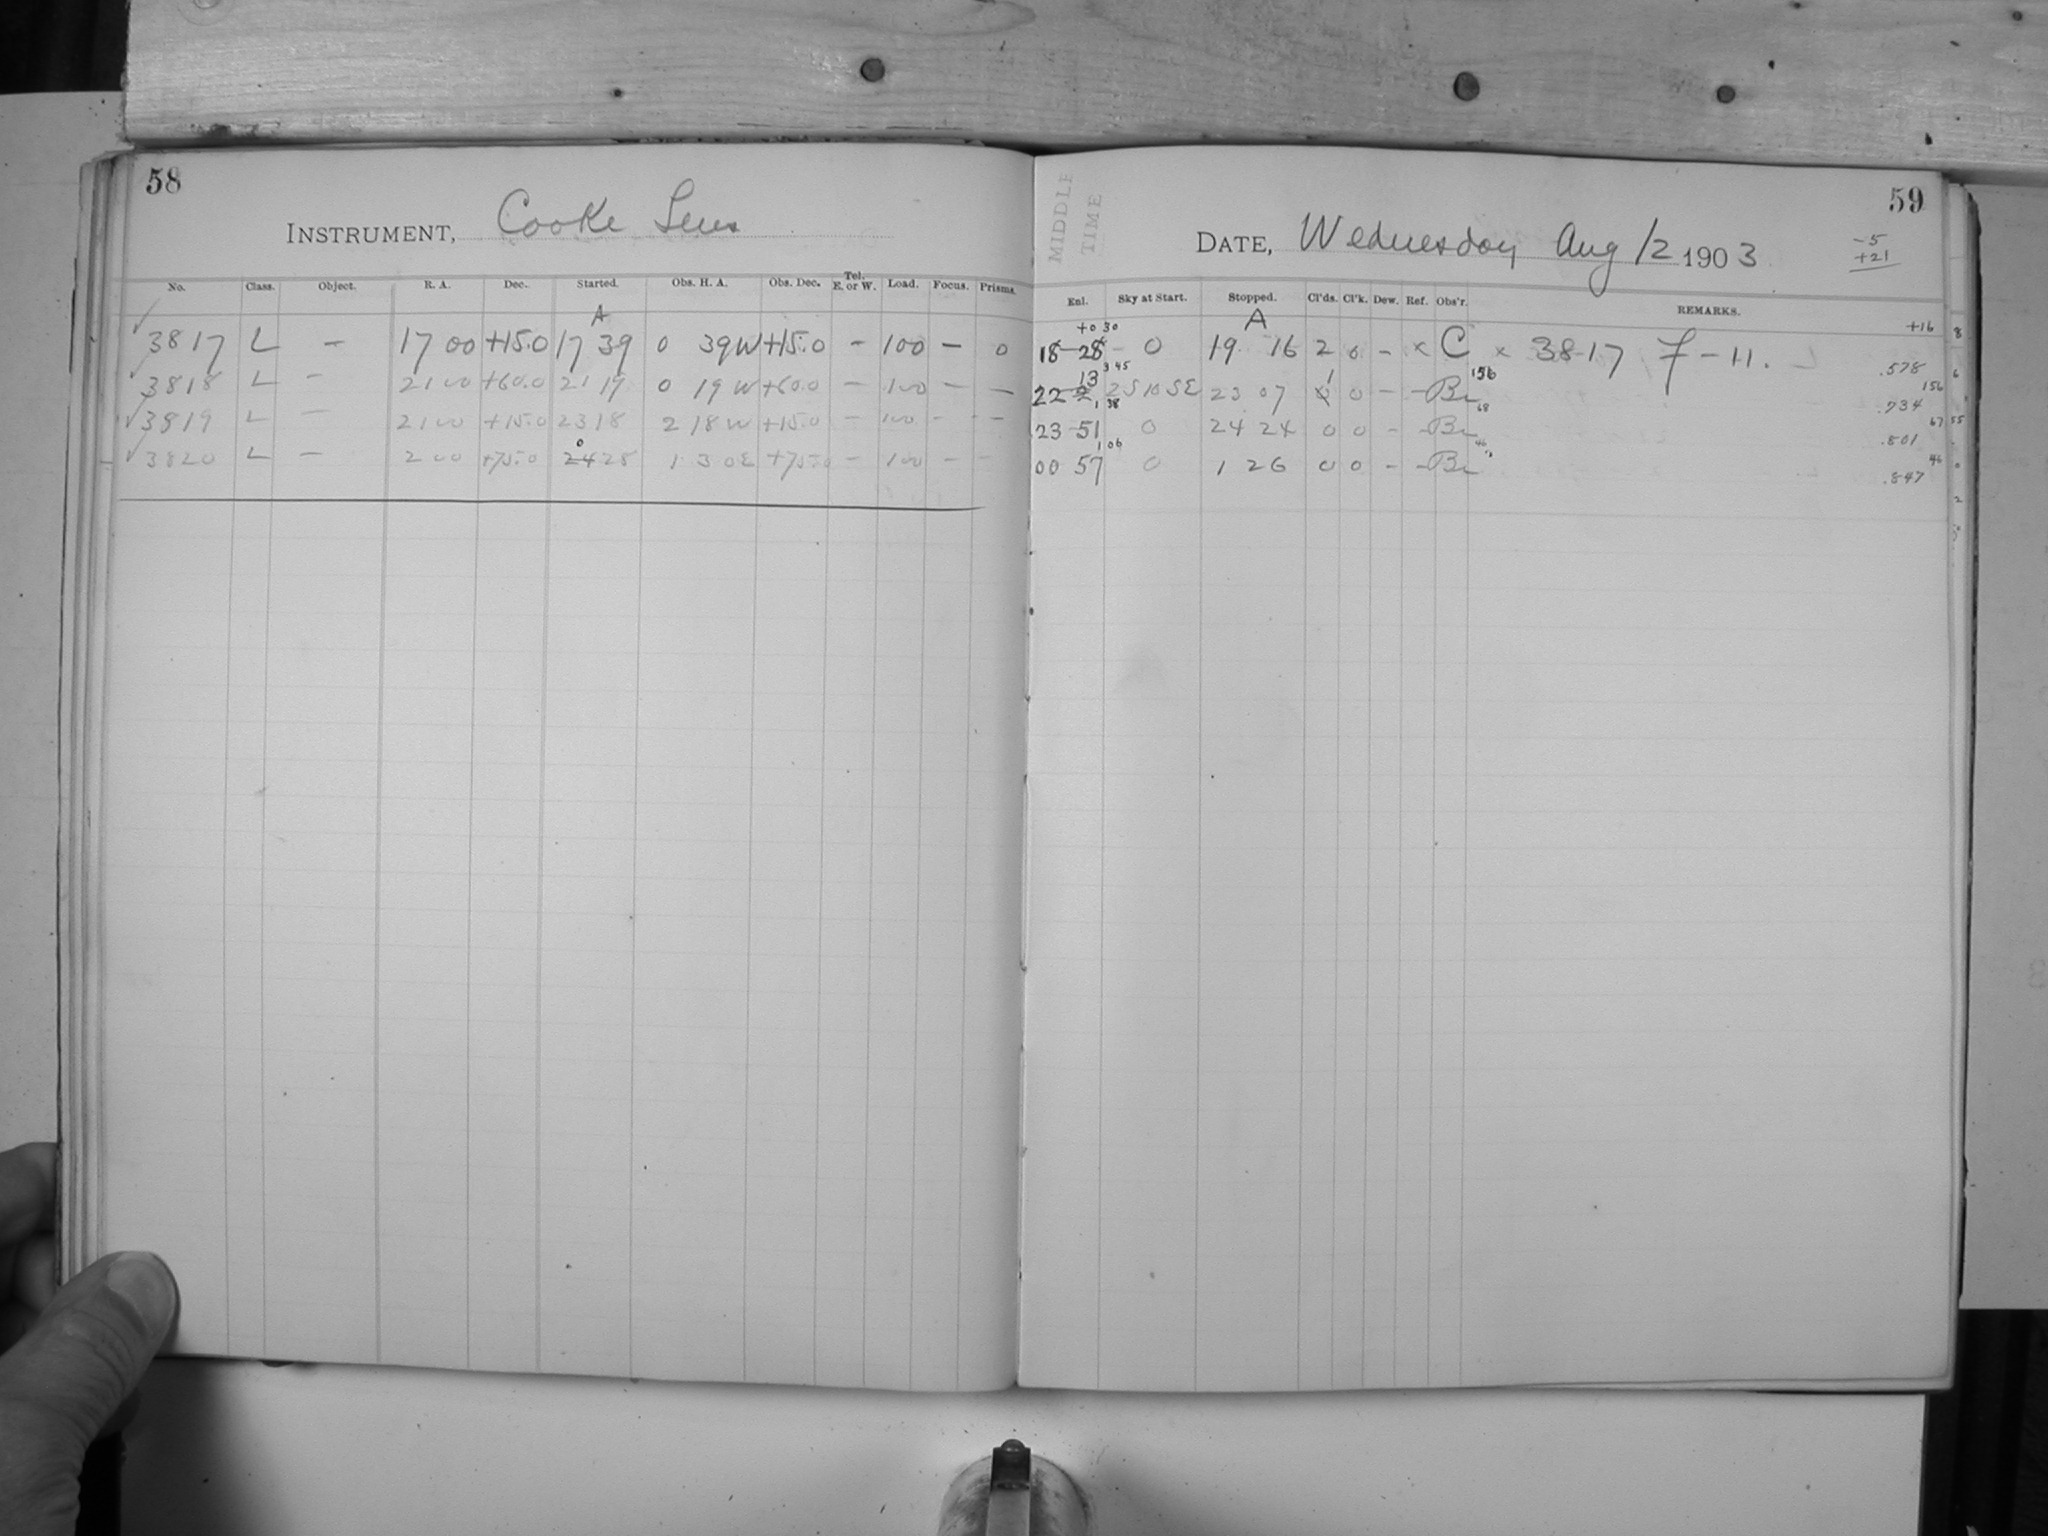 58
INSTRUMENT, Cooke Lens
No. Class. Object. R. A. Dec. Started. Obs. H. A. Obs. Dec. Tel. E. or W. Load. Focus. Prisms.
A
3817 L - 17 00 +15.0 17 39 0 39W +15.0 - 100 - 0
3818 L - 21 00 +60.0 21 19 0 19 W +60.0 - 100 - -
3819 L - 21 00 +15.0 23 18 2 18 W +15.0 - 100 - -
3820 L - 2 00 +75.0 24 28 1 30E +75.0 - 100 - -
59
MIDDLE TIME
DATE, Wednesday Aug 12 1903
-5
+21
Enl. Sky at Start. Stopped. Cl'ds. Cl'k. Dew. Ref. Obs'r. REMARKS.
+0 30 A +16
18 28 - 0 19 16 2 0 - x C x 3817 F-11. .578
13 3 45 1 156 156
22 2S10SE 23 07 0 0 - - Br .734
1 38 68 67
23 51 0 24 24 0 0 - - Br .801
1 06 46 46
00 57 0 1 26 0 0 - - Br .847